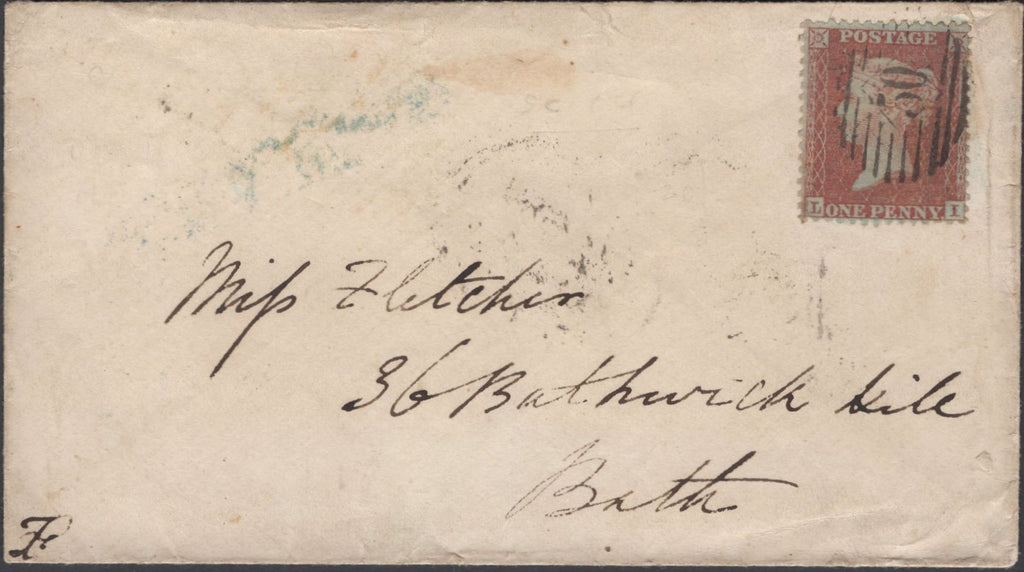 POSTAGE
L ONE PENNY I
Miss Fletcher
36 Bathwick Hill
Bath
F.